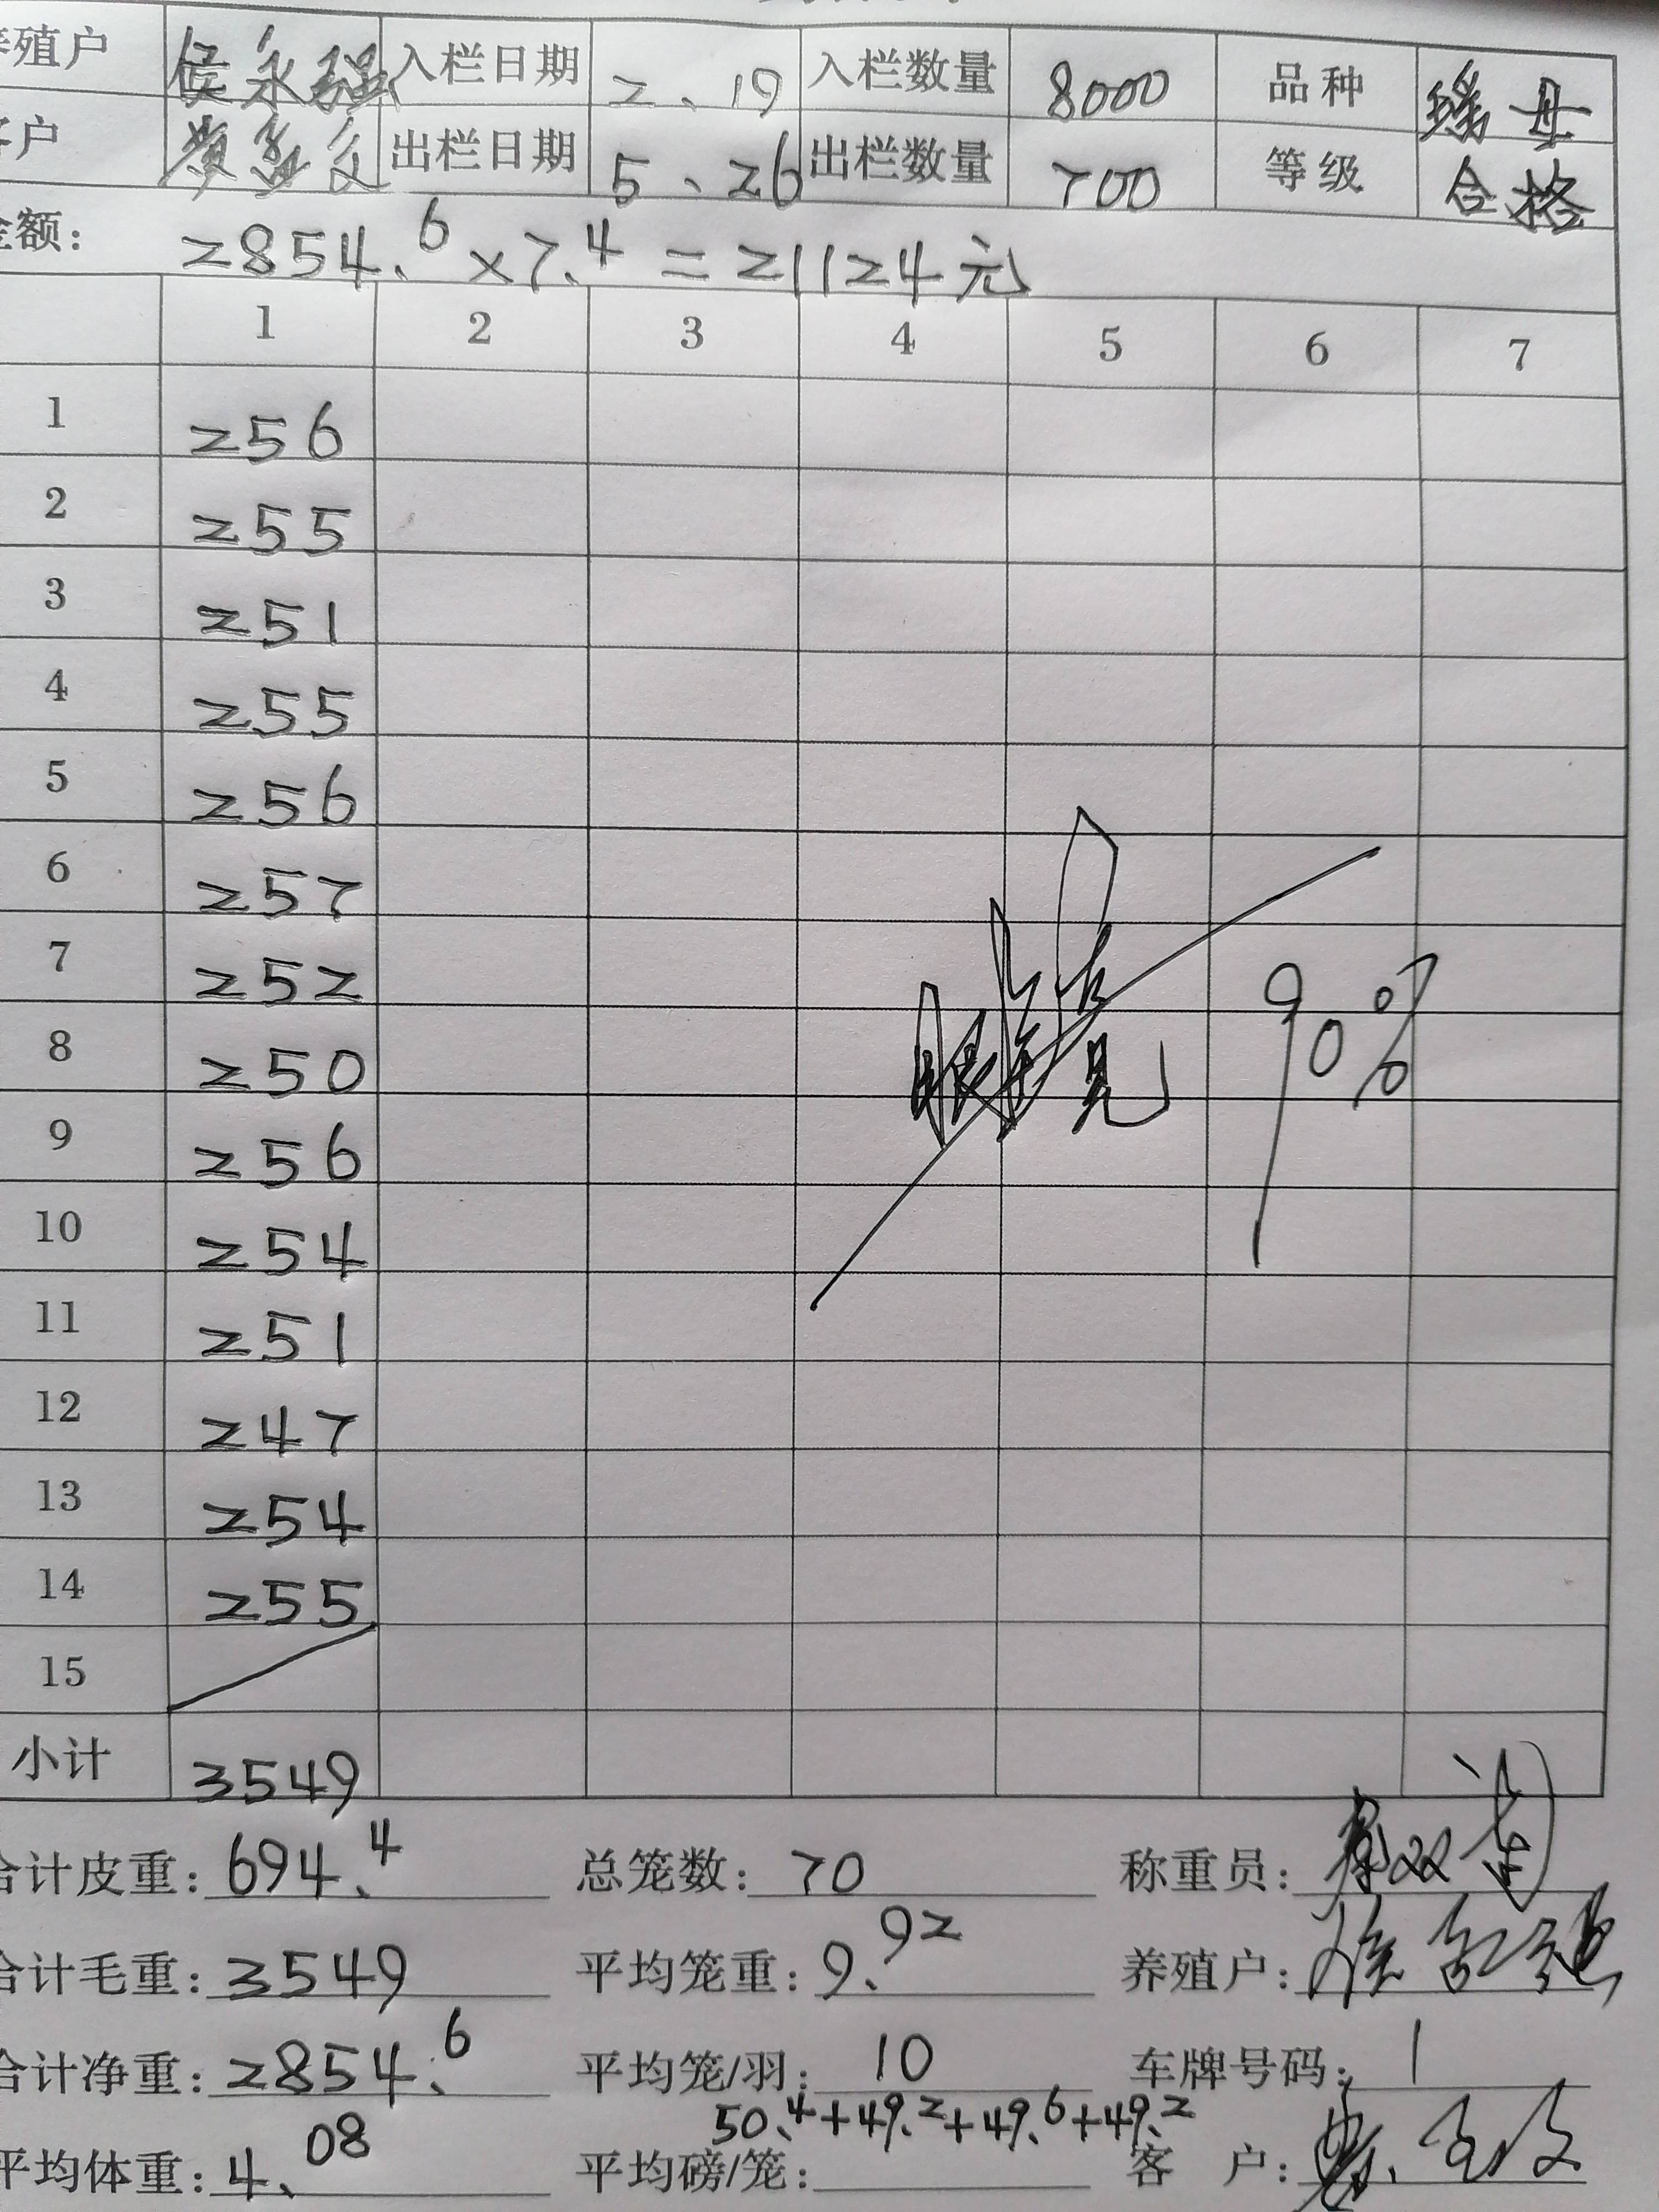 养殖户 侯永强 入栏日期 2、19 入栏数量 8000 品种 瑶母
客户 出栏日期 5、26 出栏数量 700 等级 合格
金额: 2854.6×7.4=21124元
1 2 3 4 5 6 7
1 256
2 255
3 251
4 255
5 256
6 257
7 252
8 250
9 256
10 254
11 251
12 247
13 254
14 255
15
90%
小计 3549
合计皮重: 694.4 总笼数: 70 称重员:
合计毛重: 3549 平均笼重: 9.92 养殖户:
合计净重: 2854.6 平均笼/羽: 10 车牌号码: 1
50.4+49.2+49.6+49.2
平均体重: 4.08 平均磅/笼: 客户: